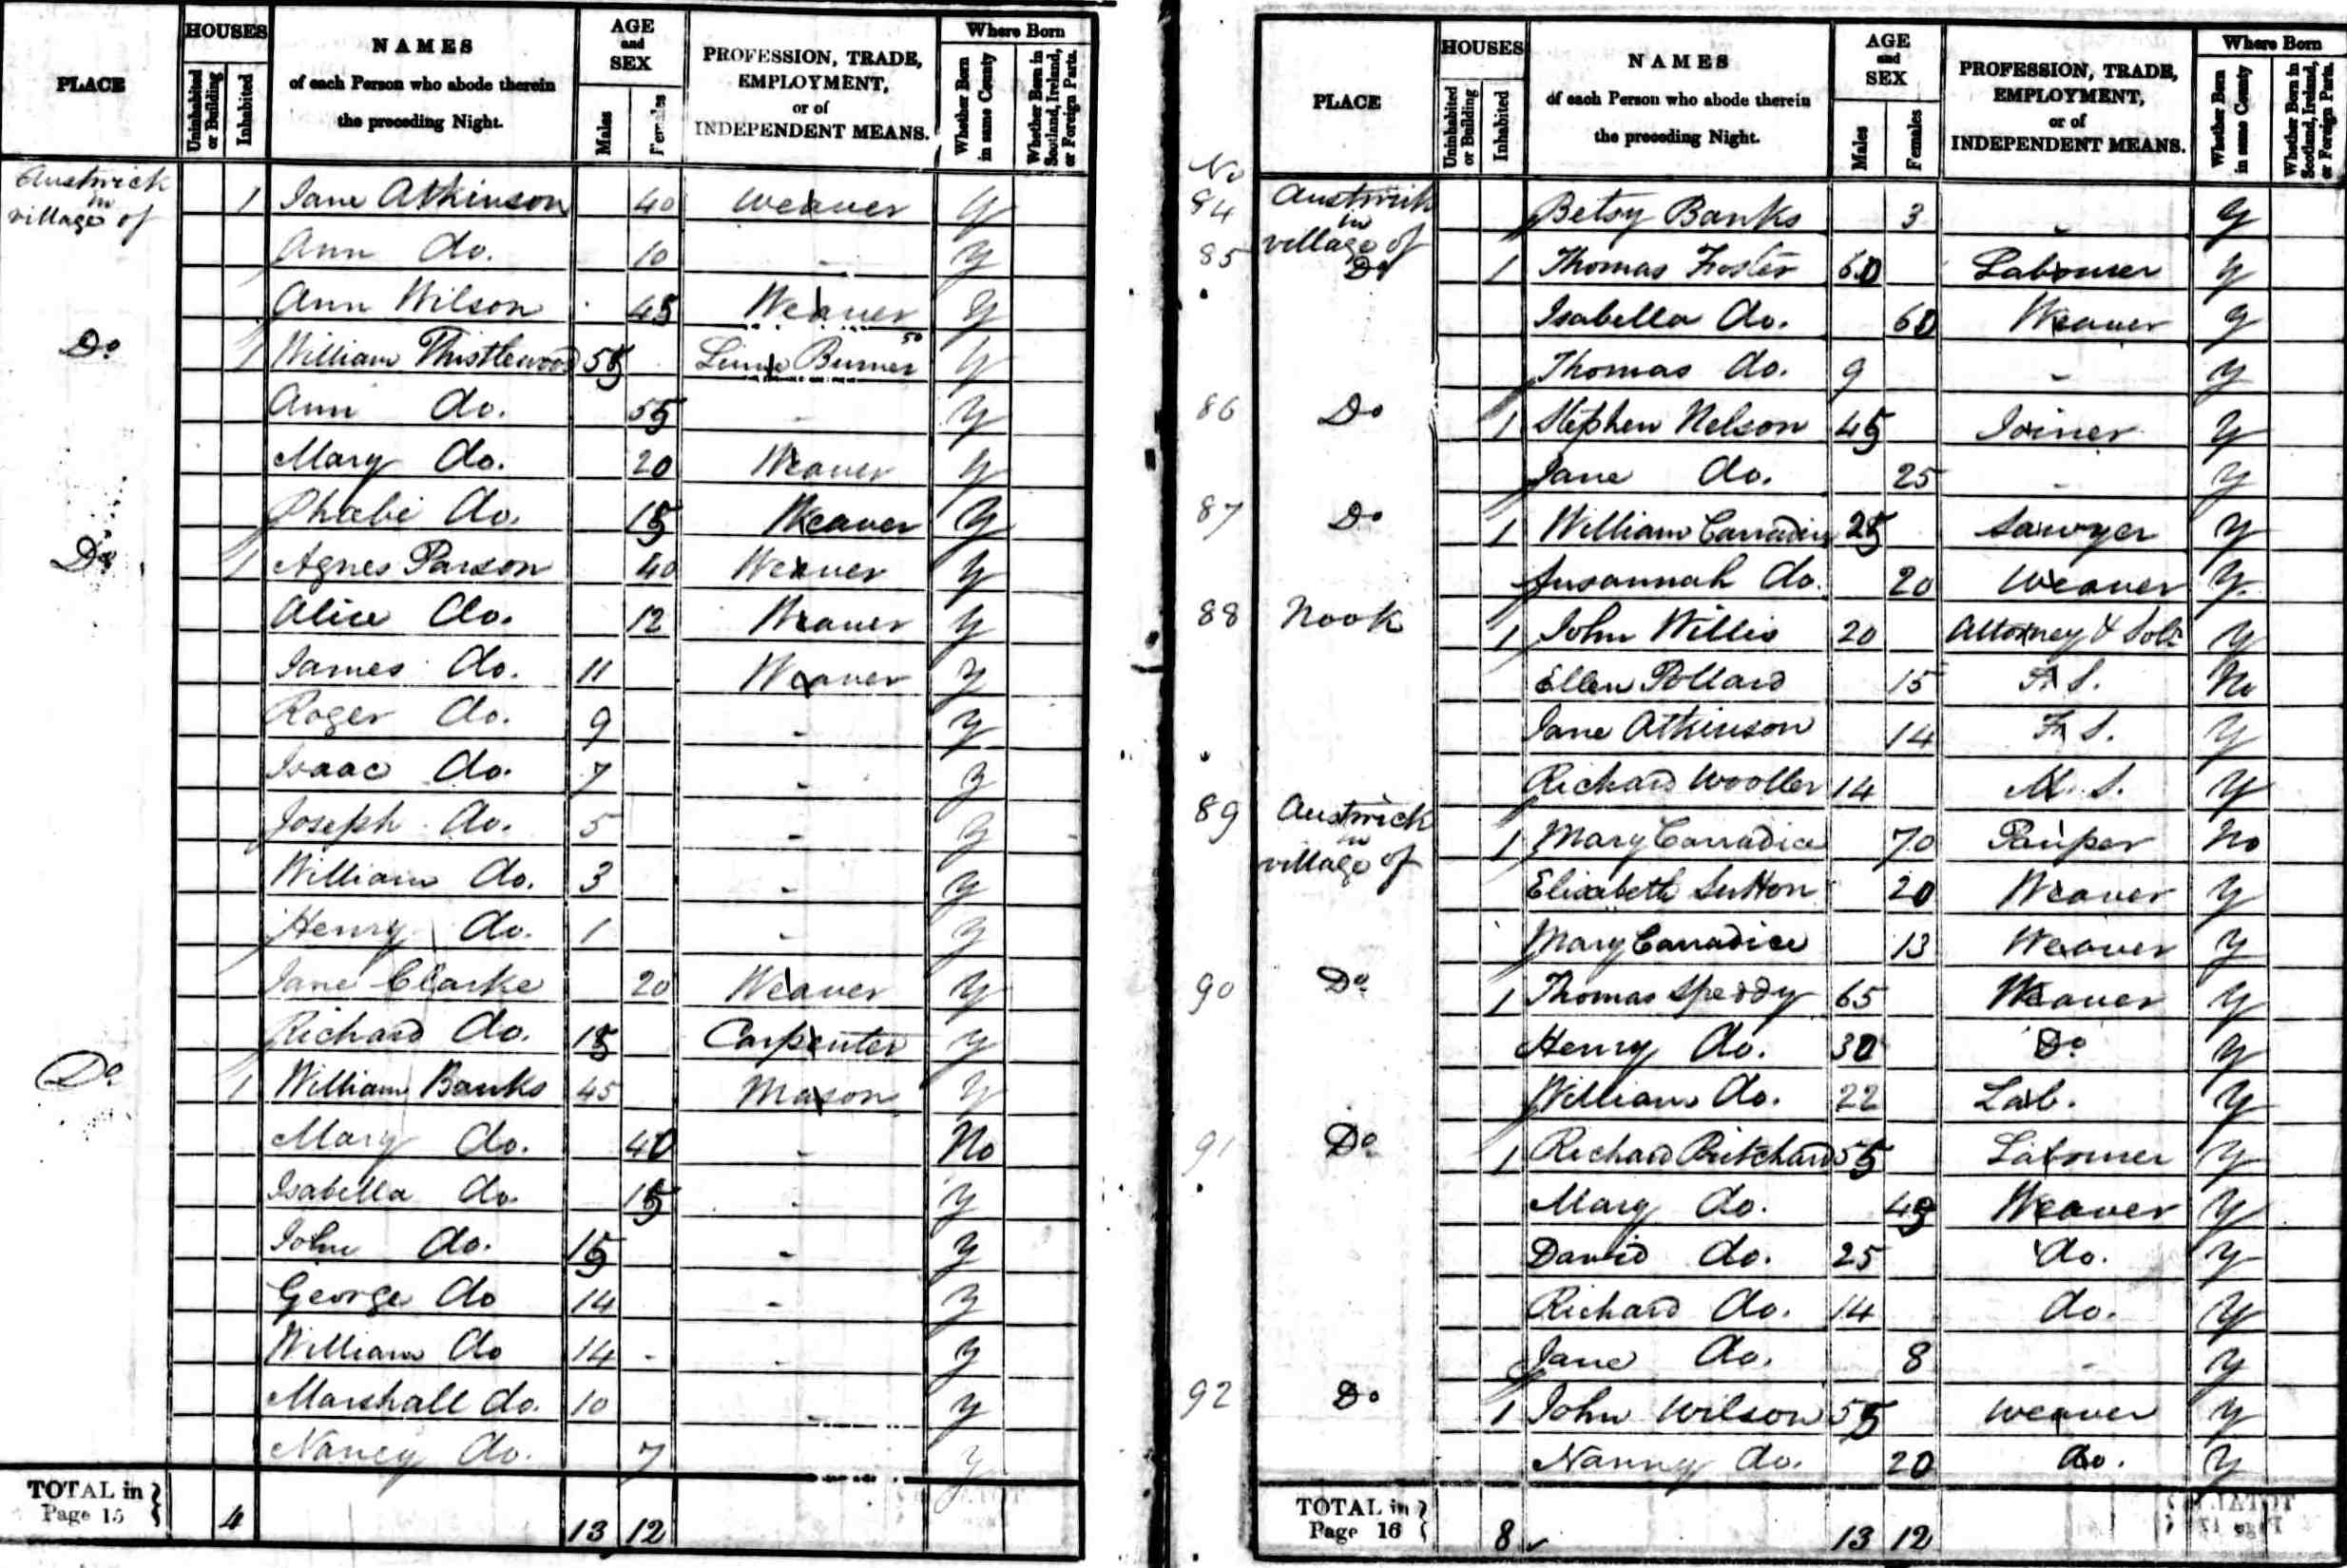 PLACE HOUSES NAMES of each Person who abode therein the preceding Night. AGE and SEX PROFESSION, TRADE, EMPLOYMENT, or of INDEPENDENT MEANS. Where Born
Uninhabited or Building Inhabited Males Females Whether Born in same County Whether Born in Scotland, Ireland, or Foreign Parts.
Austwick in village of 1 Jane Atkinson 40 Weaver y
Ann do. 10 - y
Ann Wilson 45 Weaver y
Do 1 William Thistlewood 55 Lime Burner 50 y
Ann do. 55 - y
Mary do. 20 Weaver y
Phœbe do. 15 Weaver y
Do 1 Agnes Parson 40 Weaver y
Alice do. 12 Weaver y
James do. 11 Weaver y
Roger do. 9 - y
Isaac do. 7 - y
Joseph do. 5 - y
William do. 3 - y
Henry do. 1 - y
Jane Clarke 20 Weaver y
Richard do. 15 Carpenter y
Do 1 William Banks 45 Mason y
Mary do. 40 - No
Isabella do 15 - y
John do. 15 - y
George do 14 - y
William do 14 - y
Marshall do. 10 - y
Nancy do. 7 y
TOTAL in Page 15 4 13 12
PLACE HOUSES NAMES of each Person who abode therein the preceding Night. AGE and SEX PROFESSION, TRADE, EMPLOYMENT, or of INDEPENDENT MEANS. Where Born
Uninhabited or Building Inhabited Males Females Whether Born in same County Whether Born in Scotland, Ireland, or Foreign Parts.
No
84 Austwick in village of Betsy Banks 3 - y
85 Do 1 Thomas Foster 60 Labourer y
Isabella do. 60 Weaver y
Thomas do. 9 - y
86 Do 1 Stephen Nelson 45 Joiner y
Jane do. 25 - y
87 Do 1 William Carradice 25 Sawyer y
Susannah do. 20 Weaver y
88 Nook 1 John Willis 20 Attorney & Solr y
Ellen Pollard 15 F. S. No
Jane Atkinson 14 F. S. y
Richard Wooller 14 M. S. y
89 Austwick in village of 1 Mary Carradice 70 Pauper No
Elizabeth Sutton 20 Weaver y
Mary Carradice 13 Weaver y
90 Do 1 Thomas Speddy 65 Weaver y
Henry do. 30 Do y
William do. 22 Lab. y
91 Do 1 Richard Pritchard 55 Labourer y
Mary do. 45 Weaver y
David do. 25 do. y
Richard do. 14 do. y
Jane do. 8 - y
92 Do 1 John Wilson 55 Weaver y
Nanny do. 20 do. y
TOTAL in Page 16 8 13 12